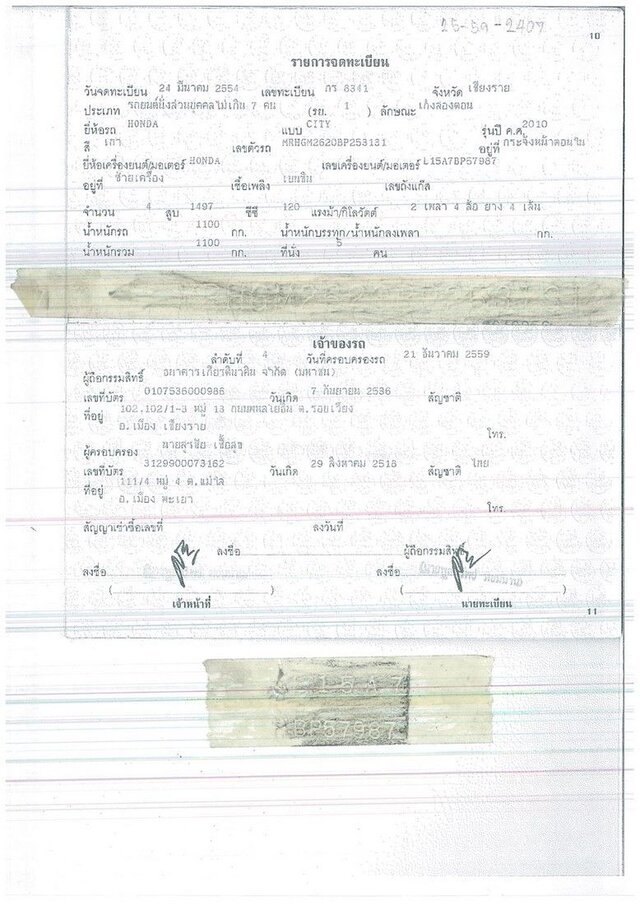 25-59-2407
10
รายการจดทะเบียน
วันจดทะเบียน 24 มีนาคม 2554 เลขทะเบียน กร 8341 จังหวัด เชียงราย
ประเภท รถยนต์นั่งส่วนบุคคลไม่เกิน 7 คน (รย. 1 ) ลักษณะ เก๋งสองตอน
ยี่ห้อรถ HONDA แบบ CITY รุ่นปี ค.ศ. 2010
สี เทา เลขตัวรถ MRHGM2620BP253131 อยู่ที่ กระจังหน้าตอนใน
ยี่ห้อเครื่องยนต์/มอเตอร์ HONDA เลขเครื่องยนต์/มอเตอร์ L15A7BP57987
อยู่ที่ ซ้ายเครื่อง เชื้อเพลิง เบนซิน เลขถังแก๊ส
จำนวน 4 สูบ 1497 ซีซี 120 แรงม้า/กิโลวัตต์ 2 เพลา 4 ล้อ ยาง 4 เส้น
น้ำหนักรถ 1100 กก. น้ำหนักบรรทุก/น้ำหนักลงเพลา กก.
น้ำหนักรวม 1100 กก. ที่นั่ง 5 คน
เจ้าของรถ
ลำดับที่ 4 วันที่ครอบครองรถ 21 ธันวาคม 2559
ผู้ถือกรรมสิทธิ์ ธนาคารเกียรตินาคิน จำกัด (มหาชน)
เลขที่บัตร 0107536000986 วันเกิด 7 กันยายน 2536 สัญชาติ
ที่อยู่ 102,102/1-3 หมู่ 13 ถนนพหลโยธิน ต.รอบเวียง
อ.เมือง เชียงราย
โทร.
ผู้ครอบครอง นายสุเชิบ เชื้อสุข
เลขที่บัตร 3129900073162 วันเกิด 29 สิงหาคม 2518 สัญชาติ ไทย
ที่อยู่ 111/4 หมู่ 4 ต.แม่ใส
อ.เมือง พะเยา
โทร.
สัญญาเช่าซื้อเลขที่ ลงวันที่
ลงชื่อ ผู้ถือกรรมสิทธิ์
ลงชื่อ ลงชื่อ
( ) ( )
เจ้าหน้าที่ นายทะเบียน
11
L15A7
BP57987